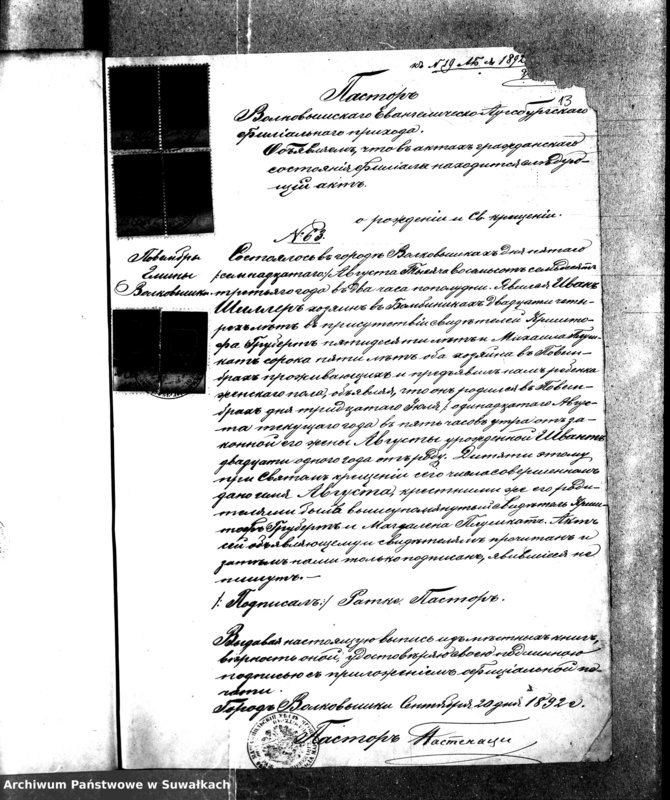 къ № 19 АБ. я 1892
13
Пасторъ
Волковышскаго Евангелическо Аугсбургскаго
филіальнаго прихода.
Объявляемъ, что въ актахъ гражданскаго
состоянія филіалы находится слѣдую-
щій актъ.
о рожденіи и Св. крещеніи.
№ 63.
Повинбры
Гмины
Волковышки
Состоялось въ городѣ Волковышкахъ дня пятаго
/семнадцатаго/ Августа Тысяча восемьсотъ семьдесятъ
третьяго года въ два часа пополудни. Явился Иванъ
Шиллеръ хозяинъ въ двадцати четы-
рехъ лѣтъ въ присутствіи свидѣтелей Кришто-
фа Грубертъ пятидесяти лѣтъ и Михаила Туш-
катъ сорока пяти лѣтъ оба хозяйна въ Повин-
брахъ проживающихъ и предъявилъ намъ ребенка
женскаго пола, объявляя, что онъ родился въ Повин-
брахъ дня тридцатаго Іюля /: одинадцатаго Авгус-
та текущаго года въ пять часовъ утра отъ за-
конной его жены Августы урожденной Швантъ
двадцати одного года отъ роду. Дитяти этому
при Святомъ крещеніи сего числа совершенномъ
дано имя Августа, крестными же его роди-
телями были вышеупомянутый свидѣтель Криш-
тофъ Грубертъ и Магдалена Тушкатъ. Актъ
сей объявляющему и свидѣтелямъ прочитанъ и
затѣмъ нами только подписанъ, явившіеся не
пишутъ. —
/: Подписалъ:/ Ратке. Пасторъ.
Выдавая настоящую выпись изъ мѣстныхъ книгъ,
вѣрность оной, удостовѣряю своею подлинною
подписью съ приложеніемъ оффиціальной пе-
чати.
Городъ Волковышки Сентября 20 дня 1892 г.
Пасторъ
Archiwum Państwowe w Suwałkach